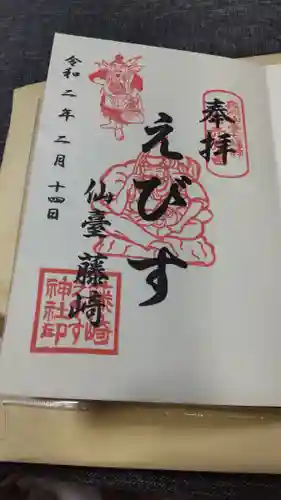 奉拝
えびす
仙臺 藤崎
令和二年二月十四日
藤崎
えびす
神社印